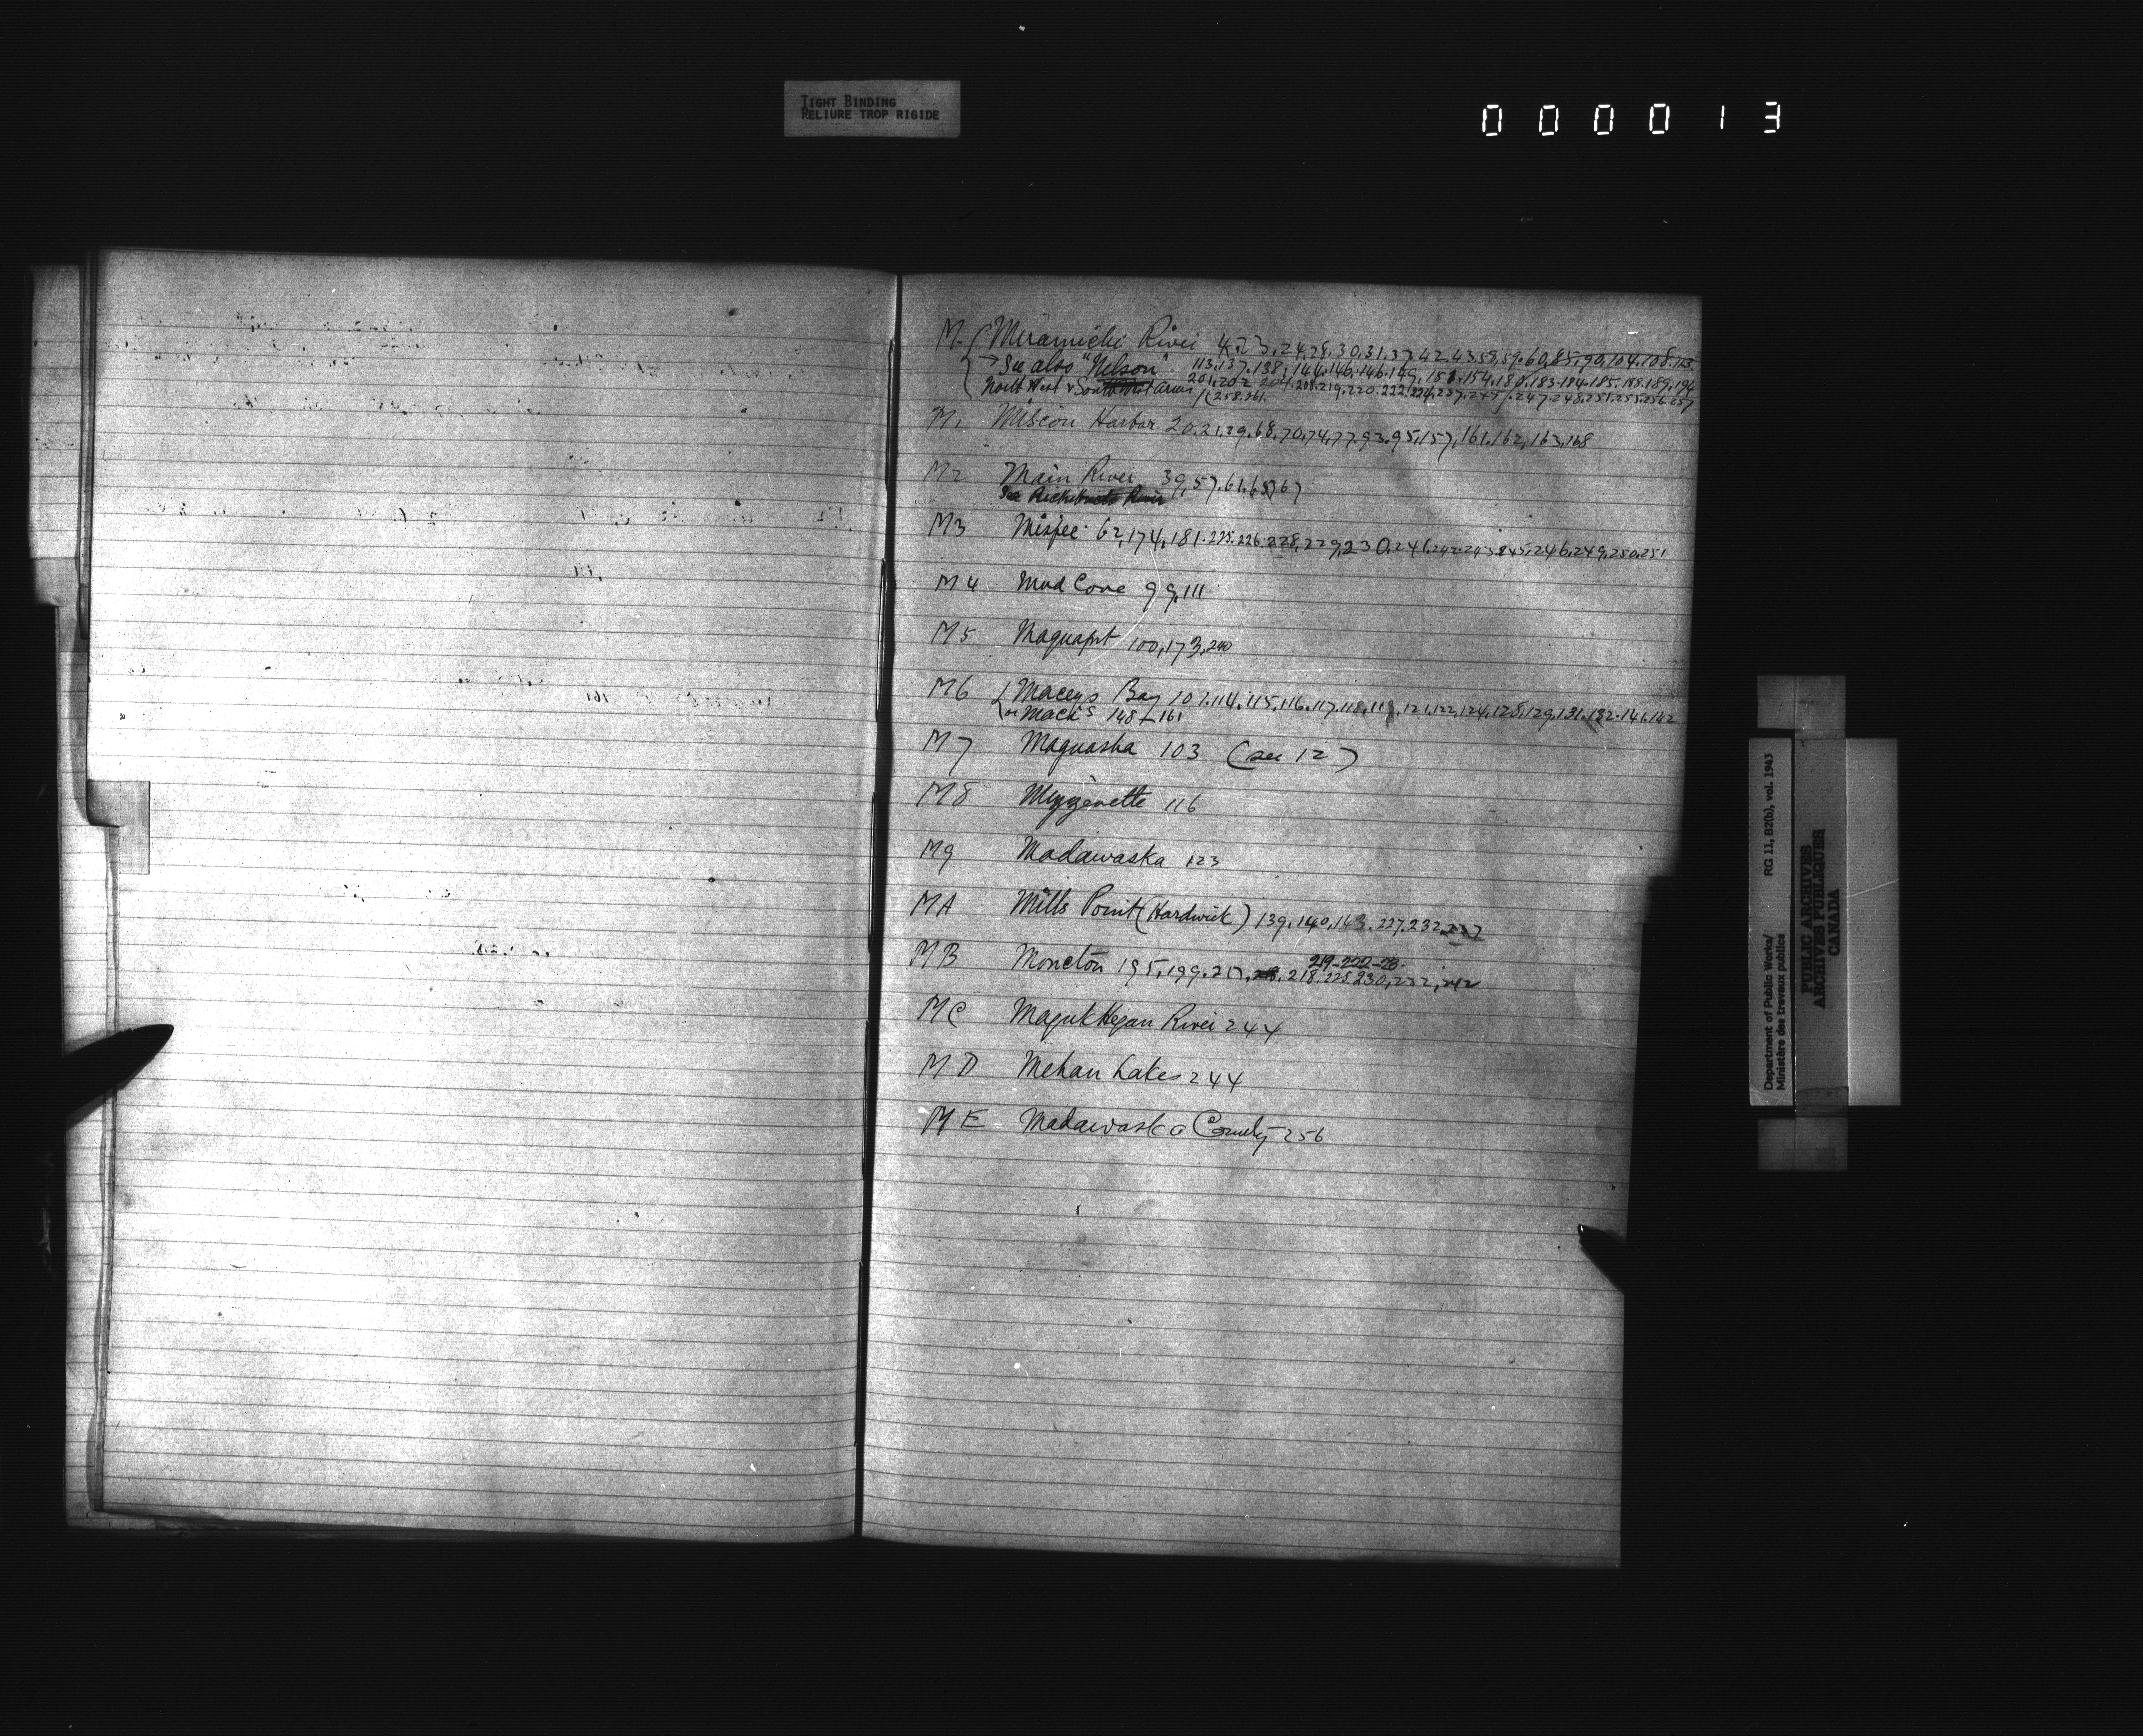 TIGHT BINDING
RELIURE TROP RIGIDE
000013
M. Miramichi River 4.23.24.28.30.31.37.42.43.58.59.60.85.90.104.108.113.
→ See also "Nelson" 113.137.138.144.146.146.149.151.154.180.183.184.185.188.189.196
North West & South West arms 201.202 204.208.219.220.222.224.237.245.247.248.251.255.256.257
258.261.
M1 Miscou Harbor. 20.21.29.68.70.74.77.93.95.157.161.162.163.168
M2 Main River 39.57.61.65.67
See Richibucto River
M3 Mispec. 62,174,181.225.226.228,229,230.241.242.243.245.246.249.250.251
M4 Mud Cove 99.111
M5 Maquapit 100,173.240
M6 Maceys Bay 101.114.115.116.117.118.119.121.122.124.128.129.131.132.141.142
or Mack's 148-161
M7 Maguasha 103 (see 12)
M8 Mizzenette 116
M9 Madawaska 123
MA Mills Point (Hardwick) 139.140.143.227.232.237
MB Moncton 195.199.217. 218.225.230,232,242
219-222-28.
MC Magukthegan River 244
MD Mehan Lakes 244
ME Madawaska County 256
Department of Public Works/ RG 11, B2(b), vol. 1943
Ministère des travaux publics
PUBLIC ARCHIVES
ARCHIVES PUBLIQUES
CANADA